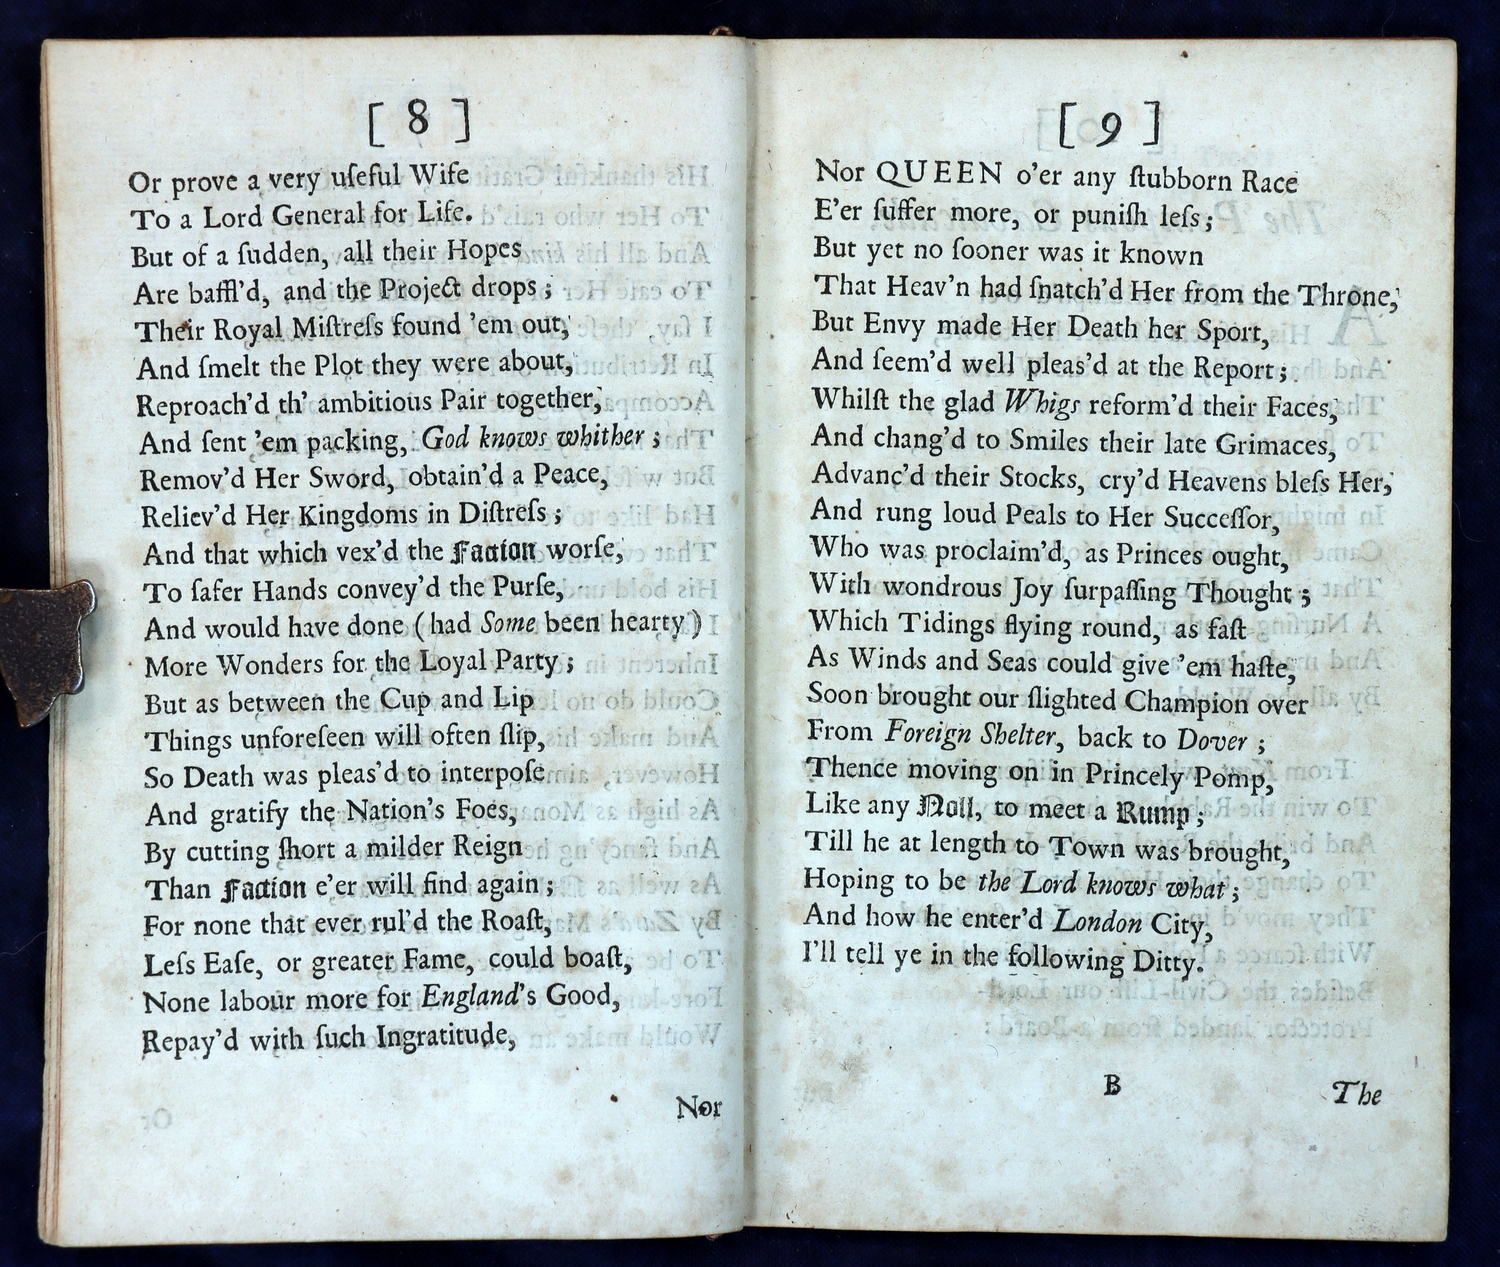 [ 8 ]
Or prove a very uſeful Wife
To a Lord General for Life.
But of a ſudden, all their Hopes
Are baffl'd, and the Project drops;
Their Royal Miſtreſs found 'em out,
And ſmelt the Plot they were about,
Reproach'd th' ambitious Pair together,
And ſent 'em packing, God knows whither;
Remov'd Her Sword, obtain'd a Peace,
Reliev'd Her Kingdoms in Diſtreſs;
And that which vex'd the Faction worſe,
To ſafer Hands convey'd the Purſe,
And would have done (had Some been hearty)
More Wonders for the Loyal Party;
But as between the Cup and Lip
Things unforeſeen will often ſlip,
So Death was pleas'd to interpoſe
And gratify the Nation's Foes,
By cutting ſhort a milder Reign
Than Faction e'er will find again;
For none that ever rul'd the Roaſt,
Leſs Eaſe, or greater Fame, could boaſt,
None labour more for England's Good,
Repay'd with ſuch Ingratitude,
Nor
[ 9 ]
Nor QUEEN o'er any ſtubborn Race
E'er ſuffer more, or puniſh leſs;
But yet no ſooner was it known
That Heav'n had ſnatch'd Her from the Throne,
But Envy made Her Death her Sport,
And ſeem'd well pleas'd at the Report;
Whilſt the glad Whigs reform'd their Faces,
And chang'd to Smiles their late Grimaces,
Advanc'd their Stocks, cry'd Heavens bleſs Her,
And rung loud Peals to Her Succeſſor,
Who was proclaim'd, as Princes ought,
With wondrous Joy ſurpaſſing Thought;
Which Tidings flying round, as faſt
As Winds and Seas could give 'em haſte,
Soon brought our ſlighted Champion over
From Foreign Shelter, back to Dover;
Thence moving on in Princely Pomp,
Like any Noll, to meet a Rump;
Till he at length to Town was brought,
Hoping to be the Lord knows what;
And how he enter'd London City,
I'll tell ye in the following Ditty.
B
The